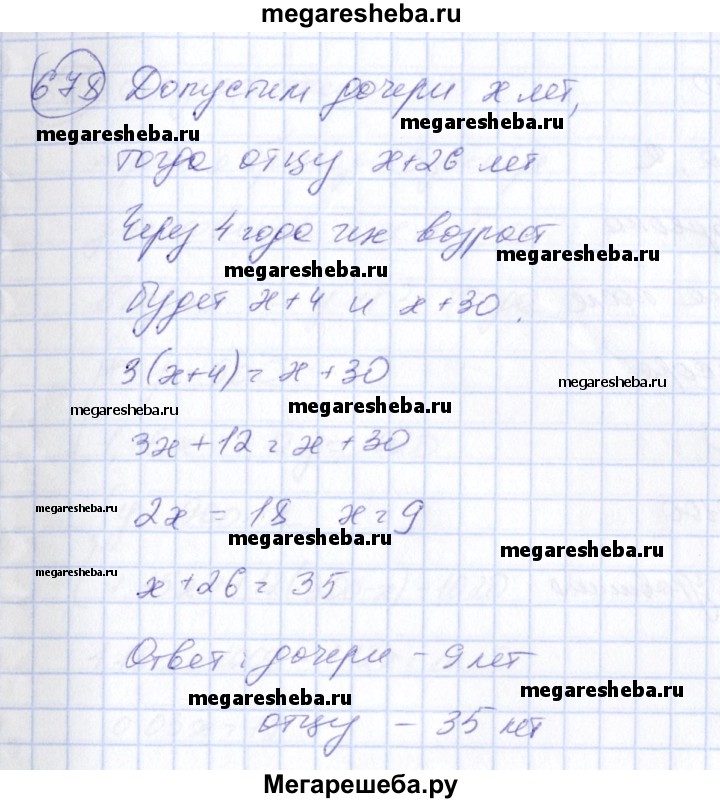 megaresheba.ru
678 Допустим дочери x лет,
megaresheba.ru megaresheba.ru
тогда отцу x+26 лет
Через 4 года их возраст
megaresheba.ru
будет x+4 и x+30.
3(x+4)=x+30
megaresheba.ru megaresheba.ru megaresheba.ru
3x+12=x+30
megaresheba.ru
2x=18 x=9
megaresheba.ru megaresheba.ru
megaresheba.ru
x+26=35
Ответ: дочери - 9 лет
megaresheba.ru megaresheba.ru
отцу - 35 лет
Мегарешеба.ру